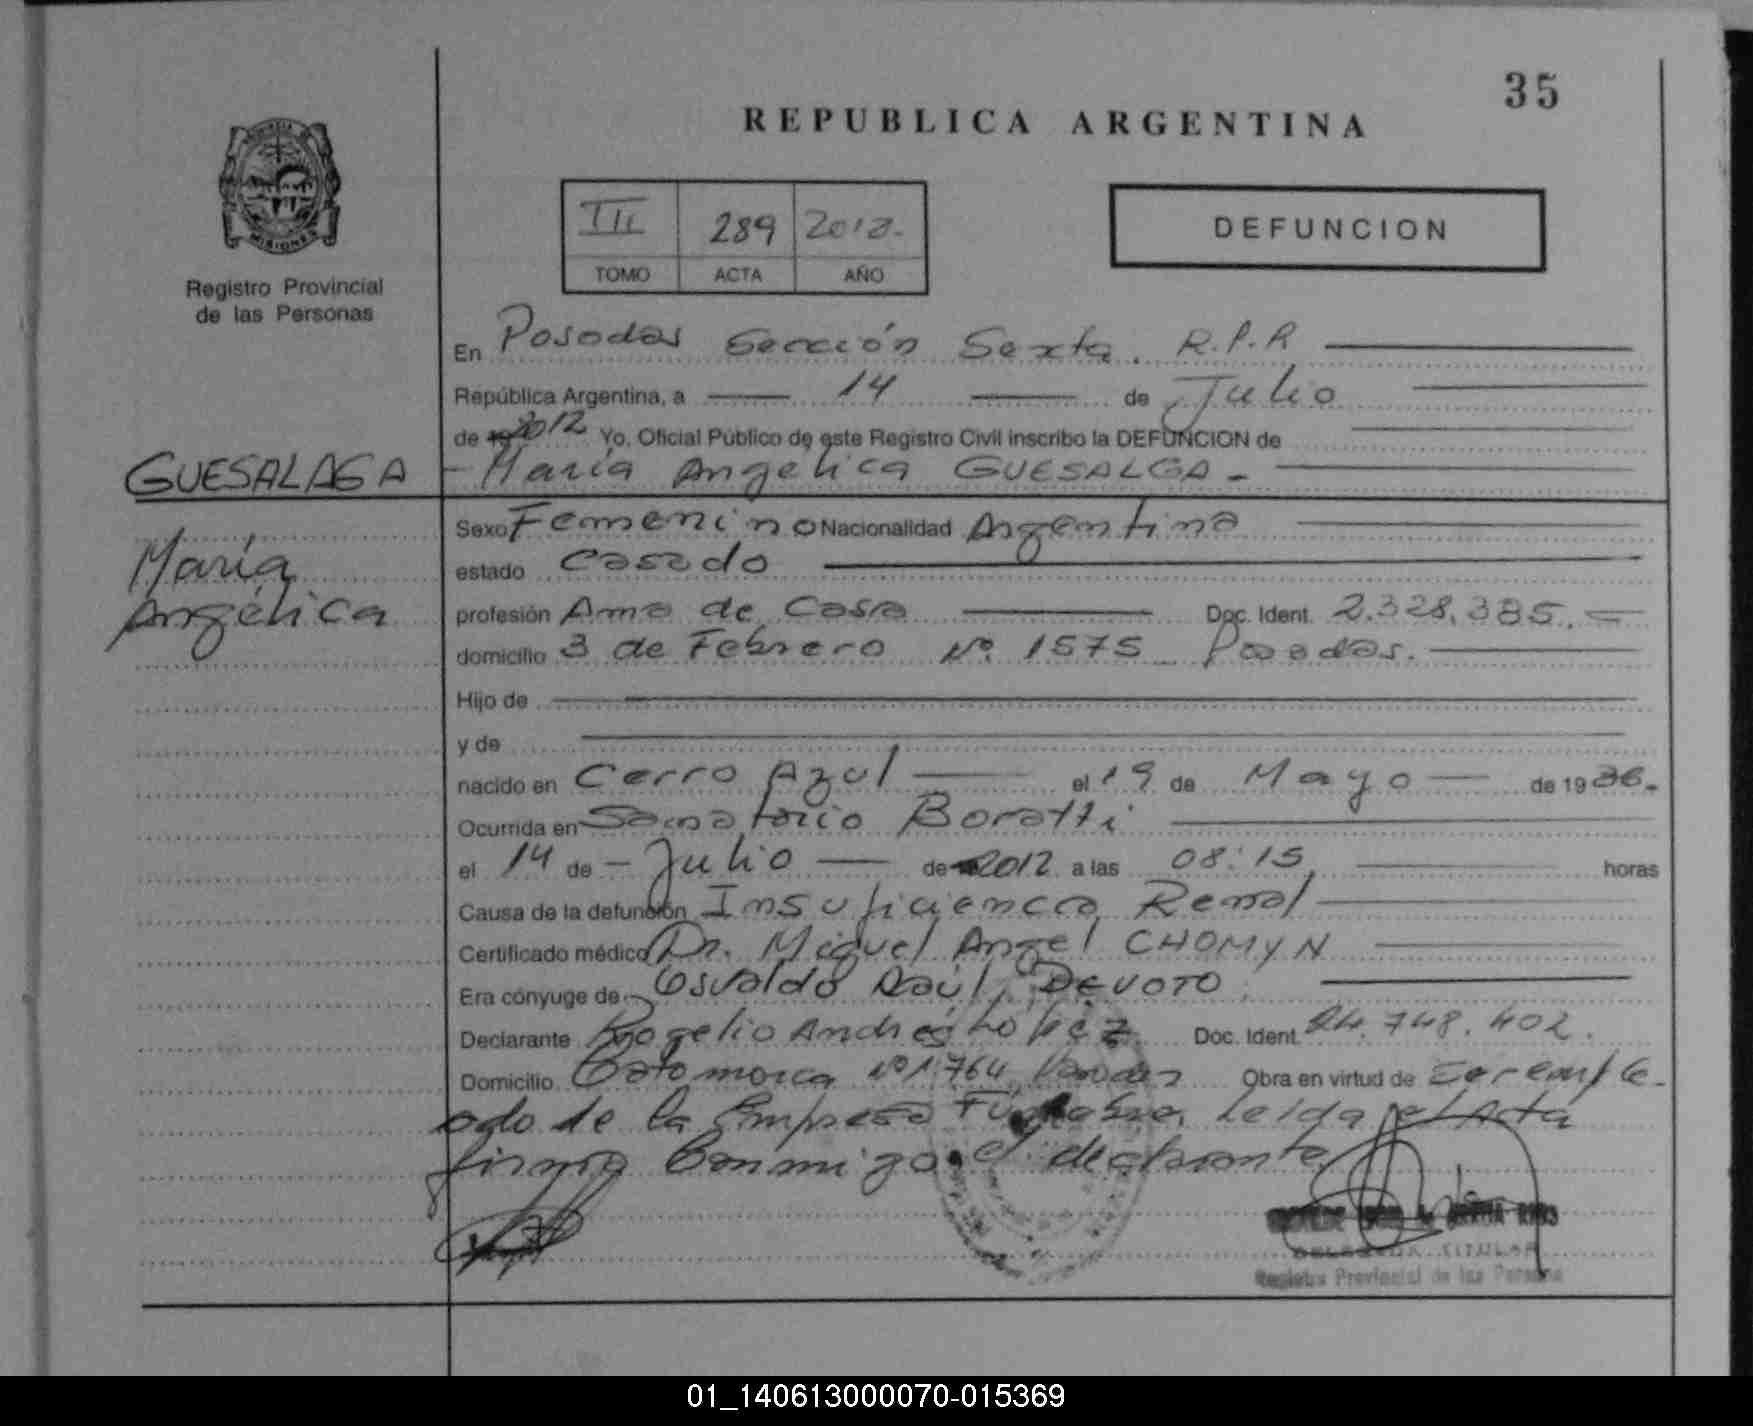 35
REPUBLICA ARGENTINA
MISIONES
Registro Provincial
de las Personas
III 289 2012.
TOMO ACTA AÑO
DEFUNCION
En Posadas Sección Sexta. R.P.R
República Argentina, a 14 de Julio
de 19 2012 Yo, Oficial Público de este Registro Civil inscribo la DEFUNCION de
GUESALAGA
María Angélica GUESALGA -
María
Angélica
Sexo Femenino Nacionalidad Argentina
estado Casado
profesión Ama de Casa Doc. Ident. 2.328.385.
domicilio 3 de Febrero Nº 1575 Posadas.
Hijo de
y de
nacido en Cerro Azul el 19 de Mayo de 19 36.
Ocurrida en Sanatorio Boratti
el 14 de Julio de 2012 a las 08:15, horas
Causa de la defunción Insuficiencia Renal
Certificado médico Dr. Miguel Angel CHOMYN
Era cónyuge de Osvaldo Raúl DEVOTO
Declarante Rogelio Andrés López Doc. Ident. 24.748.402.
Domicilio Catamarca Nº 1.764 Posadas Obra en virtud de ser emple-
ado de la Empresa Fúnebre, leida el Acta
firma conmigo el declarante
TITULAR
Registro Provincial de las Personas
01_140613000070-015369